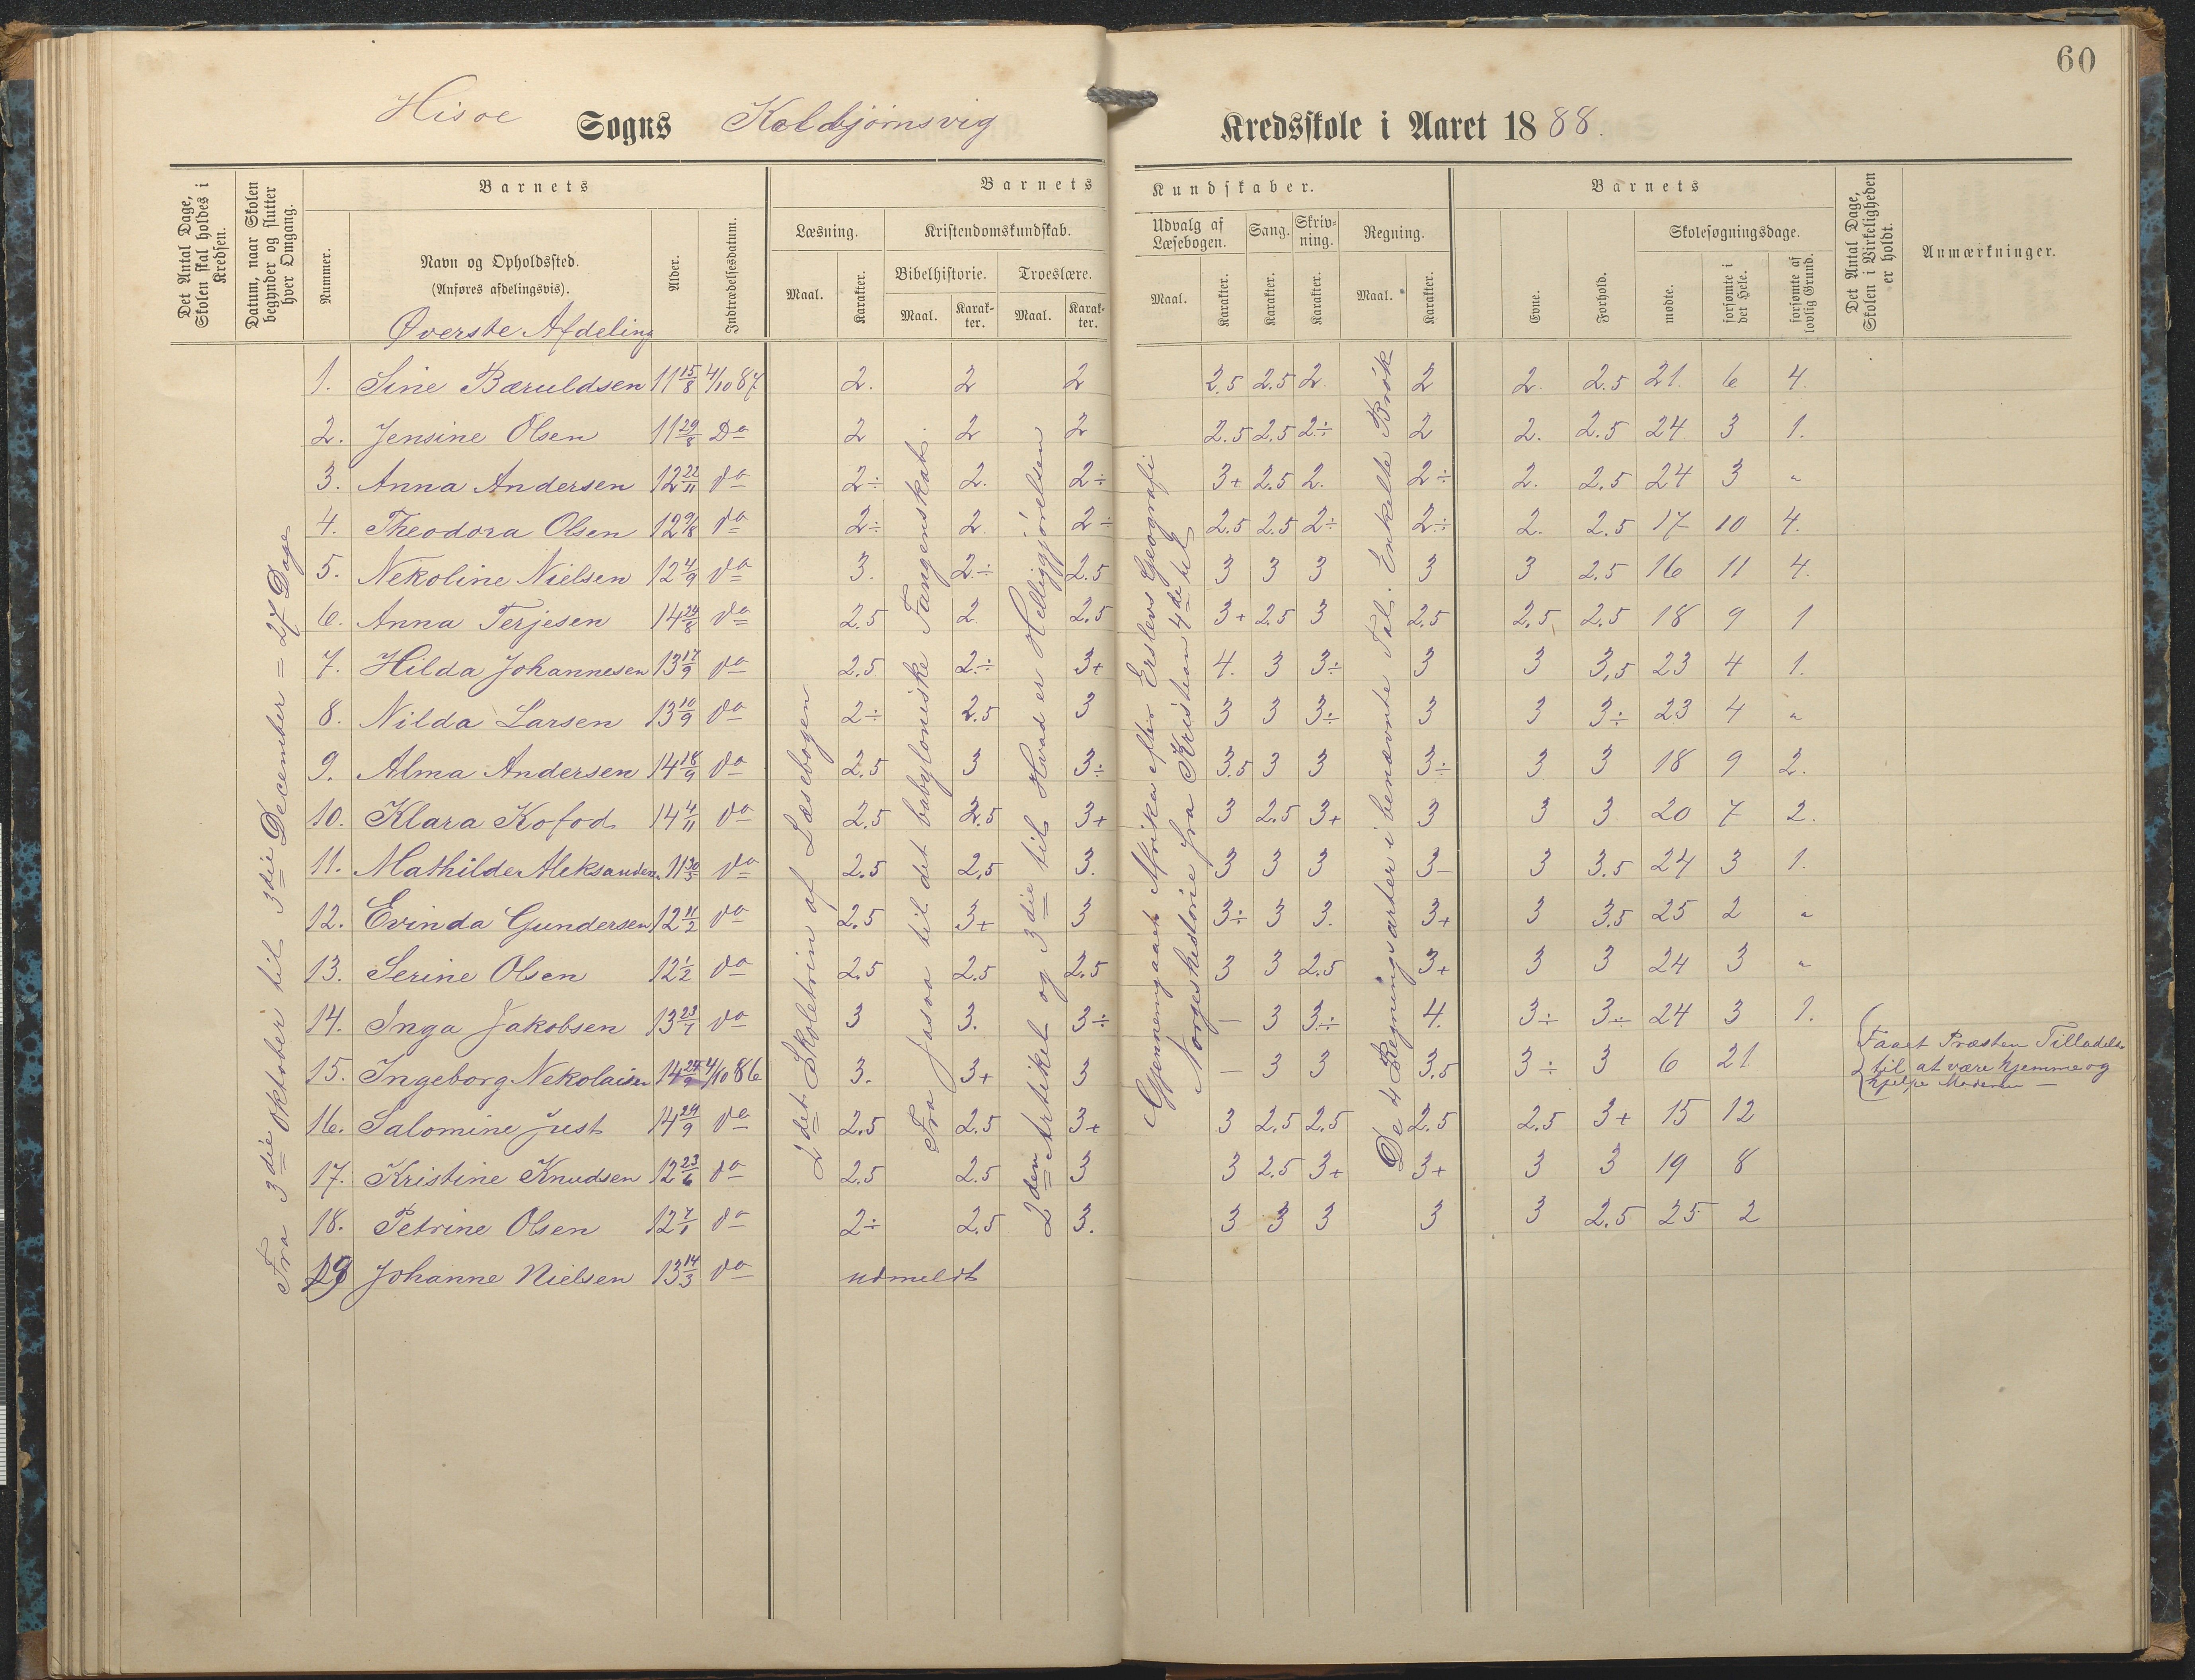 60
Hisøe Sogns Kolbjørnsvig Kredsskole i Aaret 1888.
Det Antal Dage, Skolen skal holdes i Kredsen.
Datum, naar Skolen begynder og slutter hver Omgang.
Barnets
Nummer.
Navn og Opholdssted.
(Anføres afdelingsvis).
Øverste Afdeling
Alder.
Indtrædelsesdatum.
Barnets Kundskaber.
Læsning.
Maal.
Karakter.
Kristendomskundskab.
Bibelhistorie.
Maal.
Karakter.
Troeslære.
Maal.
Karakter.
Udvalg af Læsebogen.
Maal.
Karakter.
Sang.
Karakter.
Skrivning.
Karakter.
Regning.
Maal.
Karakter.
Barnets
Evne.
Forhold.
Skolesøgningsdage.
mødte.
forsømte i det Hele.
forsømte af lovlig Grund.
Det Antal Dage, Skolen i Virkeligheden er holdt.
Anmærkninger.
Fra 3die Oktober til 3die December = 27 Dage
2det Skoletrin af Læsebogen
Fra Josva til det babyloniske Fangenskab.
2den Artikel og 3die til Hvad er Helliggjørelsen
Gjennemgaaet Afrika efter Erslevs Geografi
Norgeshistorie fra Kristian 4de til
De 4 Regningsarter i benævnte Tal. Enkelte Brøk
1. Sine Bæruldsen 11 15/8 4/10 87 2. 2 2 2.5 2.5 2. 2 2. 2.5 21. 6 4.
2. Jensine Olsen 11 29/8 Do 2 2 2 2.5 2.5 2÷ 2 2. 2.5 24 3 1.
3. Anna Andersen 12 22/11 do 2÷ 2. 2÷ 3+ 2.5 2. 2÷ 2. 2.5 24 3 "
4. Theodora Olsen 12 9/8 do 2÷ 2. 2÷ 2.5 2.5 2÷ 2÷ 2. 2.5 17 10 4.
5. Nekoline Nielsen 12 4/9 do 3. 2÷ 2.5 3 3 3 3 3 2.5 16 11 4.
6. Anna Terjesen 14 24/8 do 2.5 2. 2.5 3+ 2.5 3 2.5 2.5 2.5 18 9 1
7. Hilda Johannesen 13 17/9 do 2.5 2÷ 3+ 4. 3 3÷ 3 3 3,5 23 4 1.
8. Nilda Larsen 13 10/9 do 2÷ 2.5 3 3 3 3÷ 3 3 3÷ 23 4 "
9. Alma Andersen 14 18/9 do 2.5 3 3÷ 3.5 3 3 3÷ 3 3 18 9 2.
10. Klara Kofod 14 4/11 do 2.5 2.5 3+ 3 2.5 3+ 3 3 3 20 7 2.
11. Mathilde Aleksandersen 11 30/3 do 2.5 2,5 3. 3 3 3 3- 3 3.5 24 3 1.
12. Evinda Gundersen 12 11/2 do 2.5 3+ 3 3÷ 3 3. 3+ 3 3.5 25 2 "
13. Serine Olsen 12 1/2 do 2.5 2.5 2.5 3 3 2.5 3+ 3 3 24 3 "
14. Inga Jakobsen 13 23/7 do 3 3. 3÷ — 3 3÷ 4. 3÷ 3÷ 24 3 1.
15. Ingeborg Nekolaisen 14 24/9 4/10 86 3. 3+ 3 — 3 3 3.5 3÷ 3 6 21. Faaet Præsten Tilladelse
til at være hjemme og
hjelpe Moderen —
16. Salomine Just 14 29/9 do 2.5 2.5 3+ 3 2.5 2.5 2.5 2.5 3+ 15 12
17. Kristine Knudsen 12 23/6 do 2.5 2.5 3 3 2.5 3+ 3+ 3 3 19 8
18. Petrine Olsen 12 7/1 do 2÷ 2.5 3. 3 3 3 3 3 2.5 25 2
19 Johanne Nielsen 13 14/3 do udmeldt